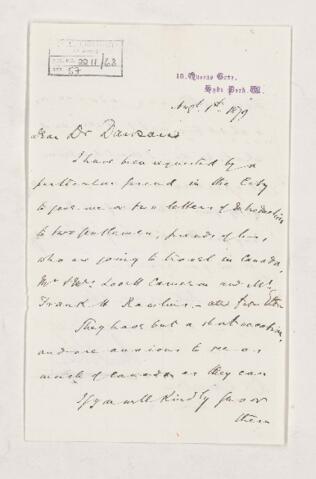 22 11/68
57
18, Queens Gate,
Hyde Park. W.
Augt 1st 1879
Dear Dr Dawson
I have been requested by a
particular friend in the City
to give one or two letters of Introduction
to two gentlemen, friends of his,
who are going to travel in Canada,
Mr Lovett Cameron and Mr
Frank H Rawlins.
They have but a short vacation,
and are anxious to see as
much of Canada as they can
If you will kindly favor
them